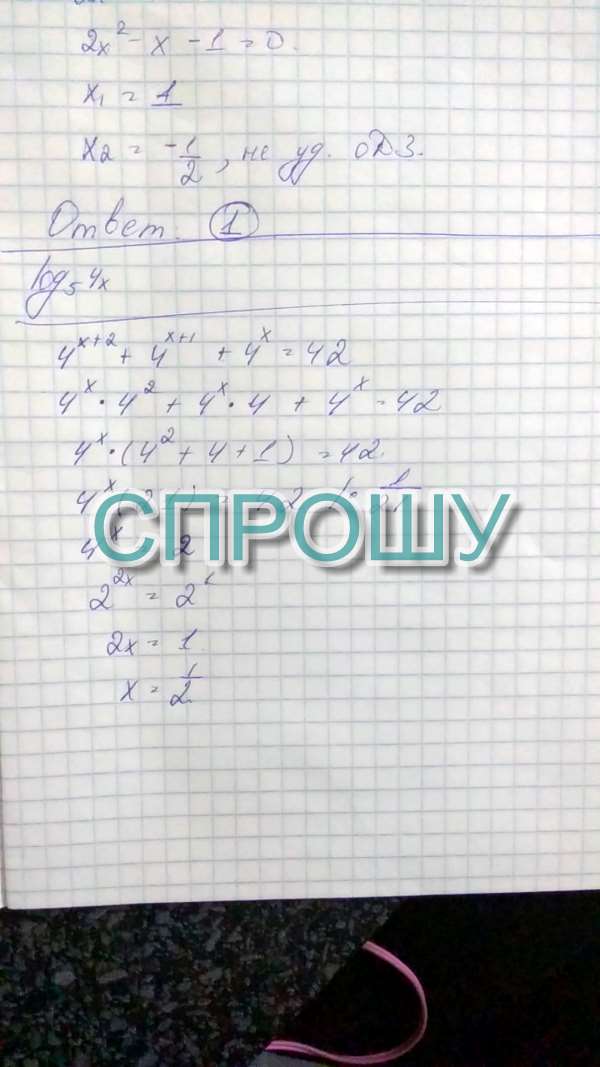 2x² - x - 1 = 0.
x₁ = 1
x₂ = -1/2, не уд. ОДЗ.
Ответ. 1
log₅ 4x
4^(x+2) + 4^(x+1) + 4^x = 42
4^x · 4² + 4^x · 4 + 4^x = 42
4^x · (4² + 4 + 1) = 42
СПРОШУ
2^(2x) = 2¹
2x = 1
x = 1/2